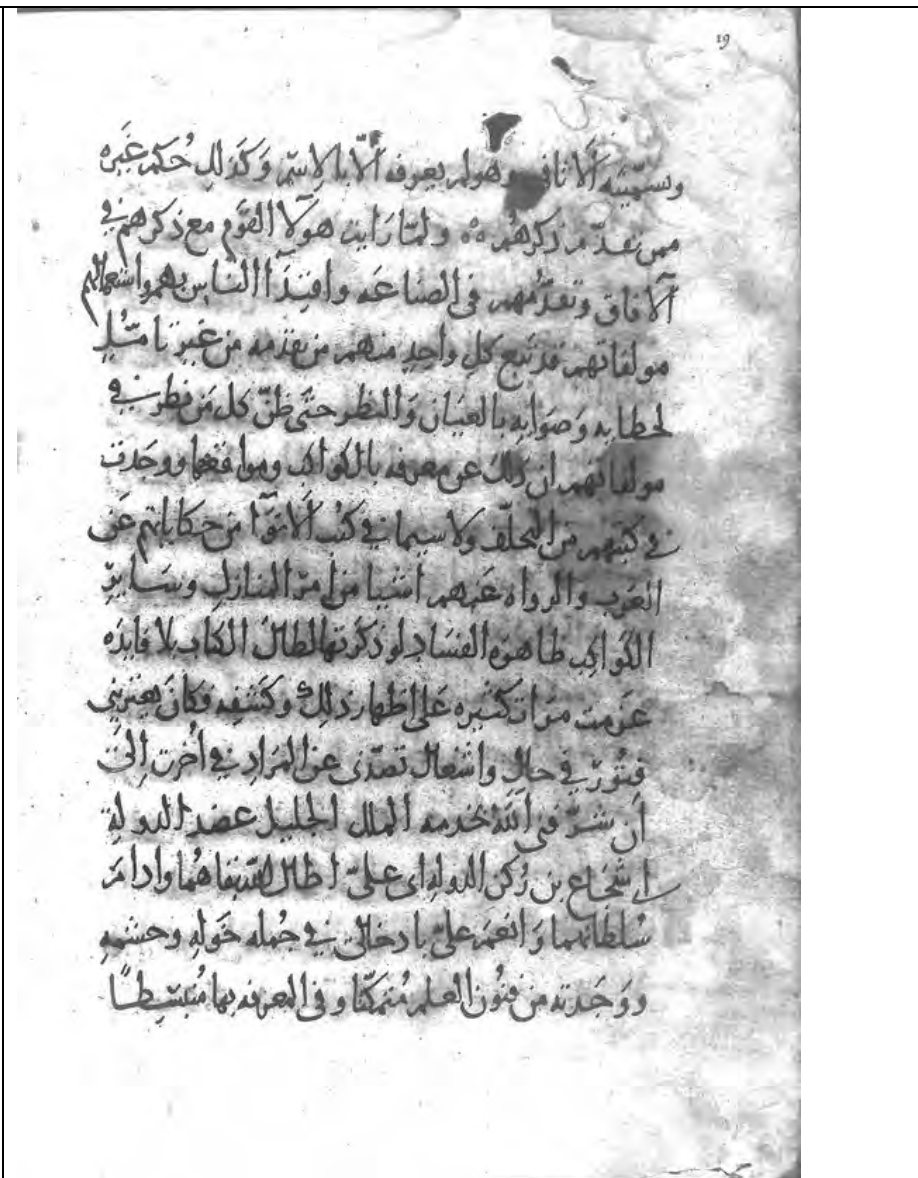 19
وتسميته الاثافي وهو لم يعرفه الّا بالاسم وَكَذلِك حُكم غَيره
ممن تقدّم ذكرهم ٥٥ ولمّا رَايت هولا القَوم مع ذكرهم في
الآفاق وتقدّمهم في الصناعه واقتدآ الناس بهم واستعمالهم
مولفاتهم قد تبع كل واحدٍ منهم من تقدّمه من غَير تامّلٍ
لخطايه وَصَوابِه بالعيَان وَالنظر حتَّى ظنّ كل مَن نظر في
مولفاتهم ان ذلك عن معرفه بالكواكب ومواقعها ووجَدت
في كتبهم من التخلّف ولا سيما في كتب الانوآ من حكاياتهم عَن
العَرب والرواه عَنهم اشيا من امرّ المنازل وسَايرِ
الكَواكِب ظاهره الفسَاد لو ذكرتها لطال الكتاب بلا فايدَه
عزمت مرَات كثيره عَلى اظهار ذلِك وكشفه فكانَ يعتريني
فتورٌ في حالٍ واشغال تصدّني عن المرَاد في اُخرى اِلىَ
اَن شرّفني الله بخدمه الملك الجليل عضد الدولة
ابي شجَاع بن رُكن الدوله ابي عليّ اطال الله بقاهُما وادامَ
سُلطانهما وَانعمَ عليّ بادخالي في جُمله خَولِه وحشمهِ
ووَجَدته من فنُون العلم مُتمكنّا وفي المعرفه بها مُنبسّطًا